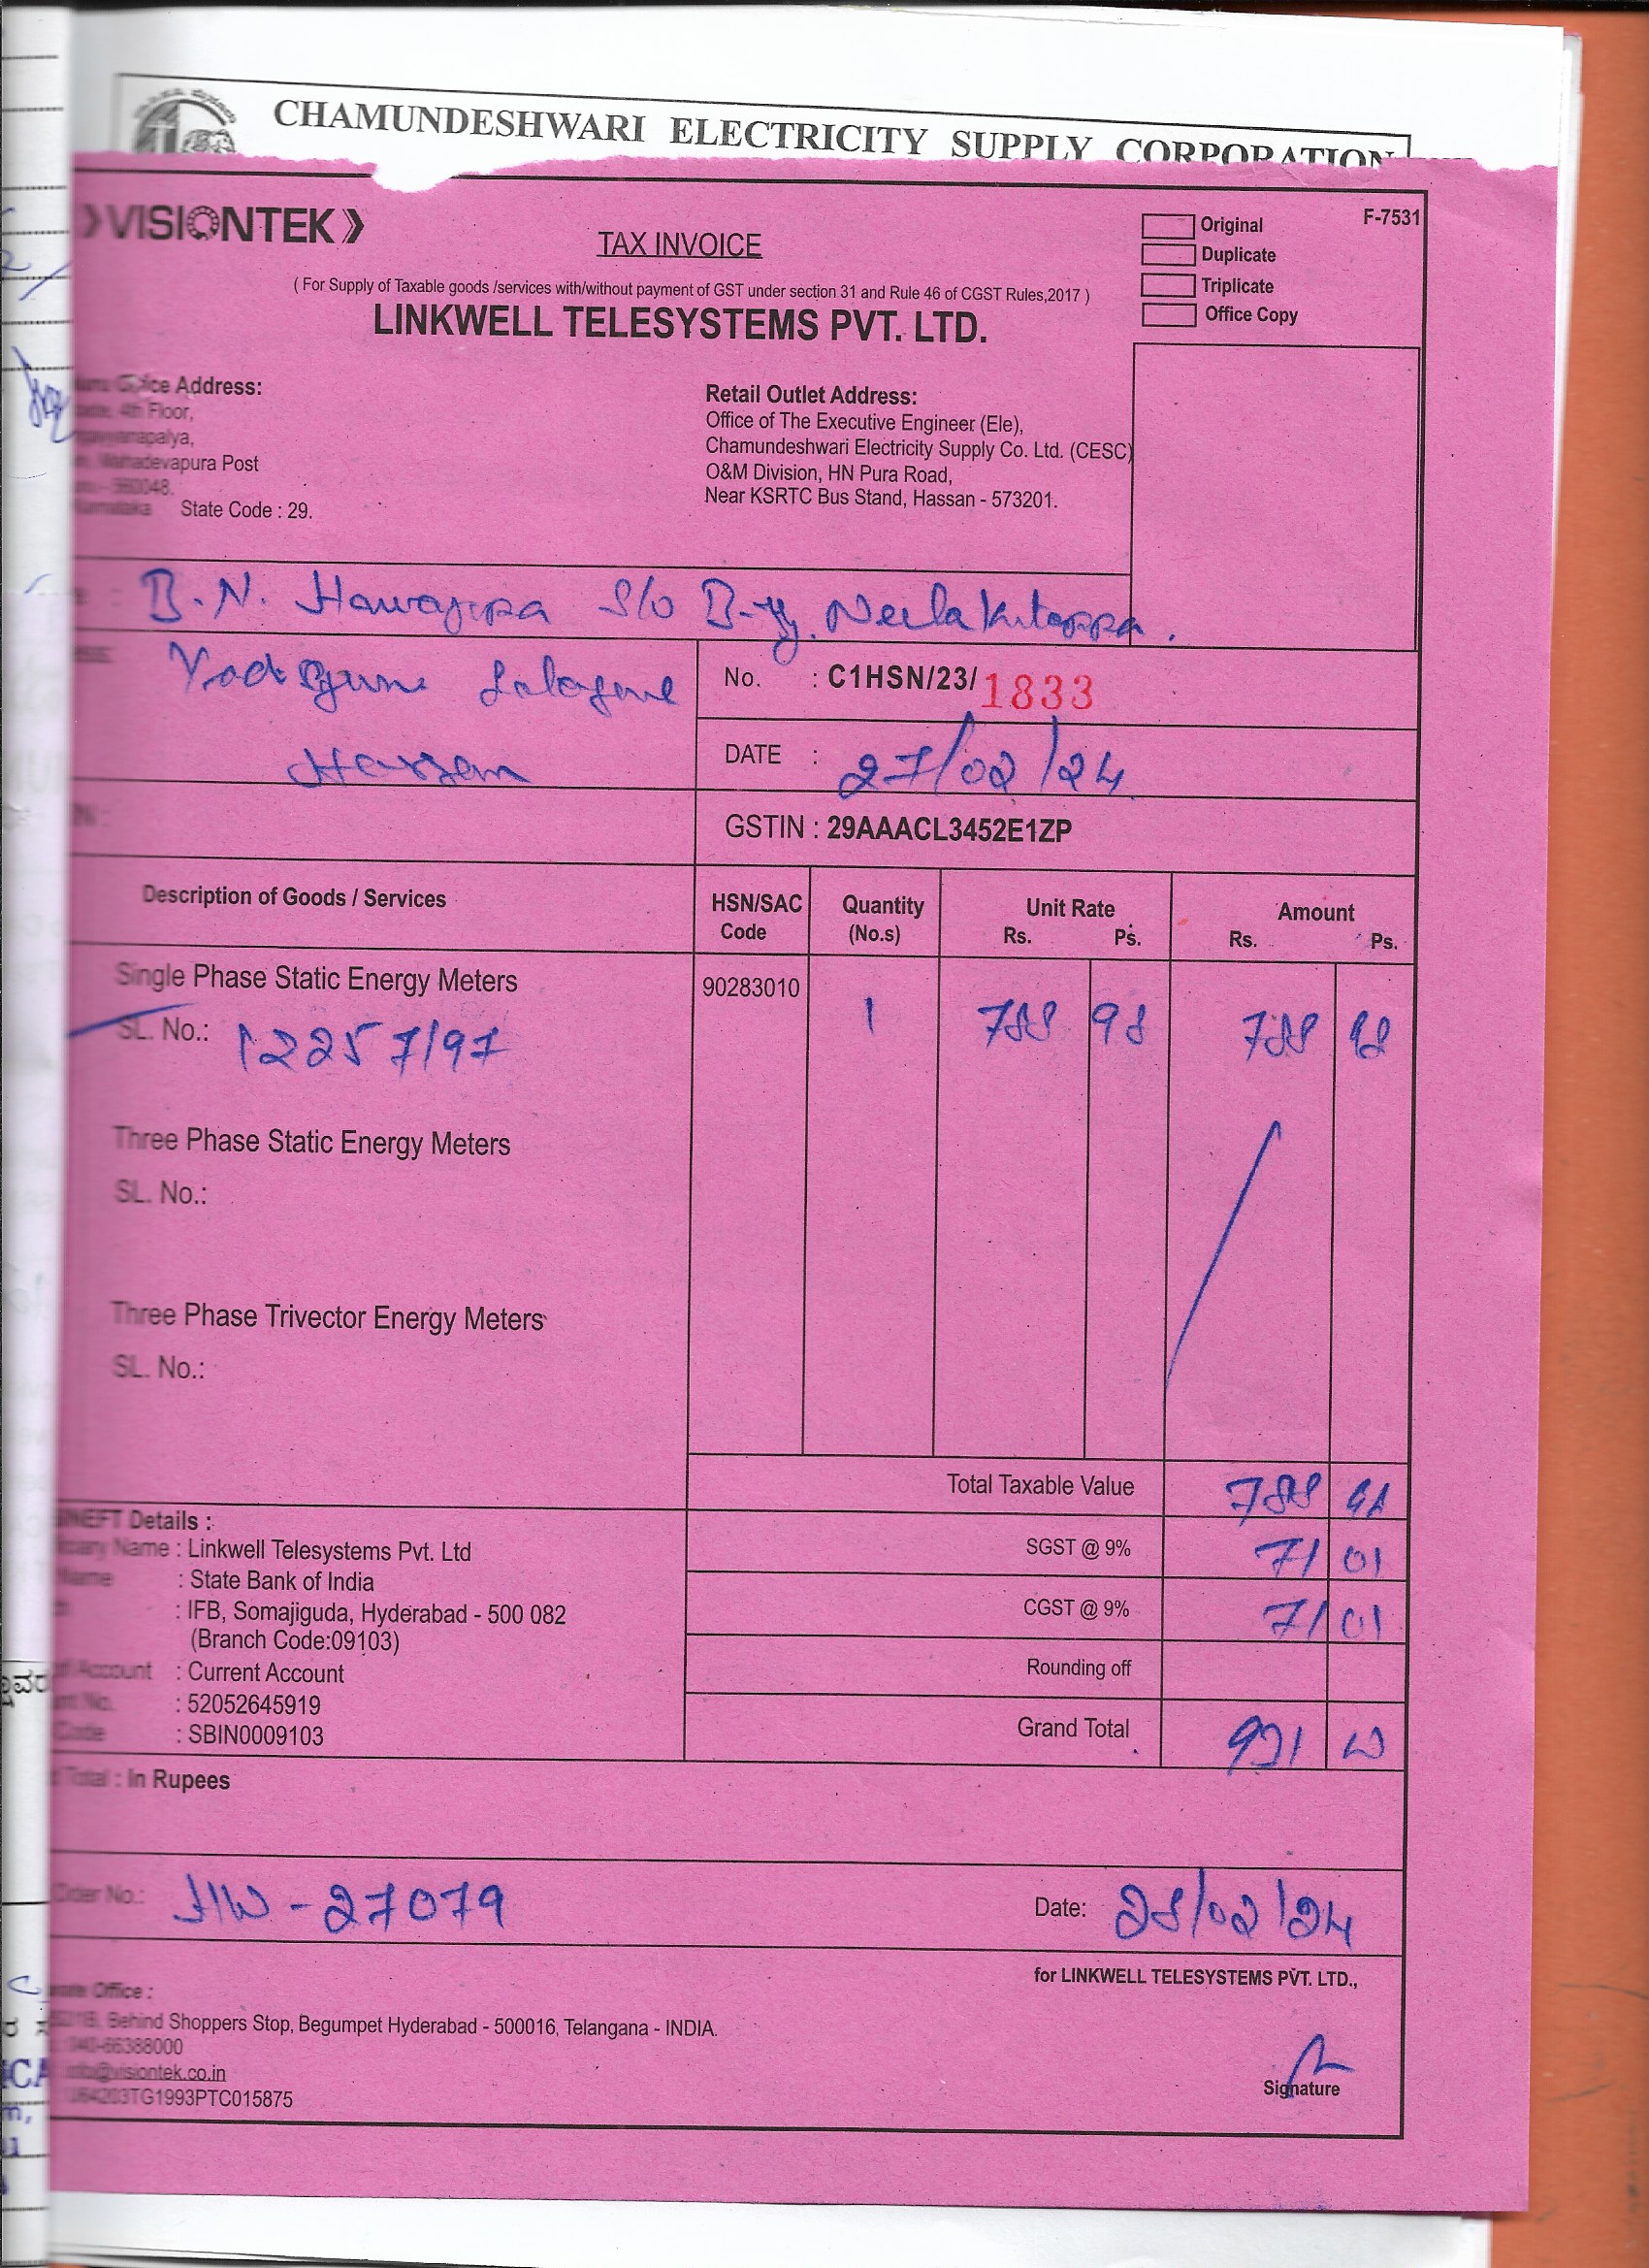 CHAMUNDESHWARI ELECTRICITY SUPPLY CORPORATION
VISIONTEK
F-7531
TAX INVOICE
Original
Duplicate
Triplicate
Office Copy
( For Supply of Taxable goods /services with/without payment of GST under section 31 and Rule 46 of CGST Rules,2017 )
LINKWELL TELESYSTEMS PVT. LTD.
Office Address:
4th Floor,
Mahadevapura Post
- 560048.
Karnataka State Code : 29.
Retail Outlet Address:
Office of The Executive Engineer (Ele),
Chamundeshwari Electricity Supply Co. Ltd. (CESC)
O&M Division, HN Pura Road,
Near KSRTC Bus Stand, Hassan - 573201.
: B.N. S/o
Hassan
No. : C1HSN/23/ 1833
DATE : 27/02/24
GSTIN : 29AAACL3452E1ZP
Description of Goods / Services HSN/SAC Code Quantity (No.s) Unit Rate Rs. Ps. Amount Rs. Ps.
Single Phase Static Energy Meters 90283010 1 788 98 788 98
SL. No.: 12257197
Three Phase Static Energy Meters
SL. No.:
Three Phase Trivector Energy Meters
SL. No.:
Total Taxable Value 788 98
SGST @ 9% 71 01
CGST @ 9% 71 01
Rounding off
Grand Total 931
NEFT Details :
Name : Linkwell Telesystems Pvt. Ltd
Name : State Bank of India
: IFB, Somajiguda, Hyderabad - 500 082
(Branch Code:09103)
Account : Current Account
No. : 52052645919
Code : SBIN0009103
Total : In Rupees
Order No.: - 27079
Date: 28/02/24
for LINKWELL TELESYSTEMS PVT. LTD.,
Office :
Behind Shoppers Stop, Begumpet Hyderabad - 500016, Telangana - INDIA.
040-66388000
info@visiontek.co.in
U64203TG1993PTC015875
Signature